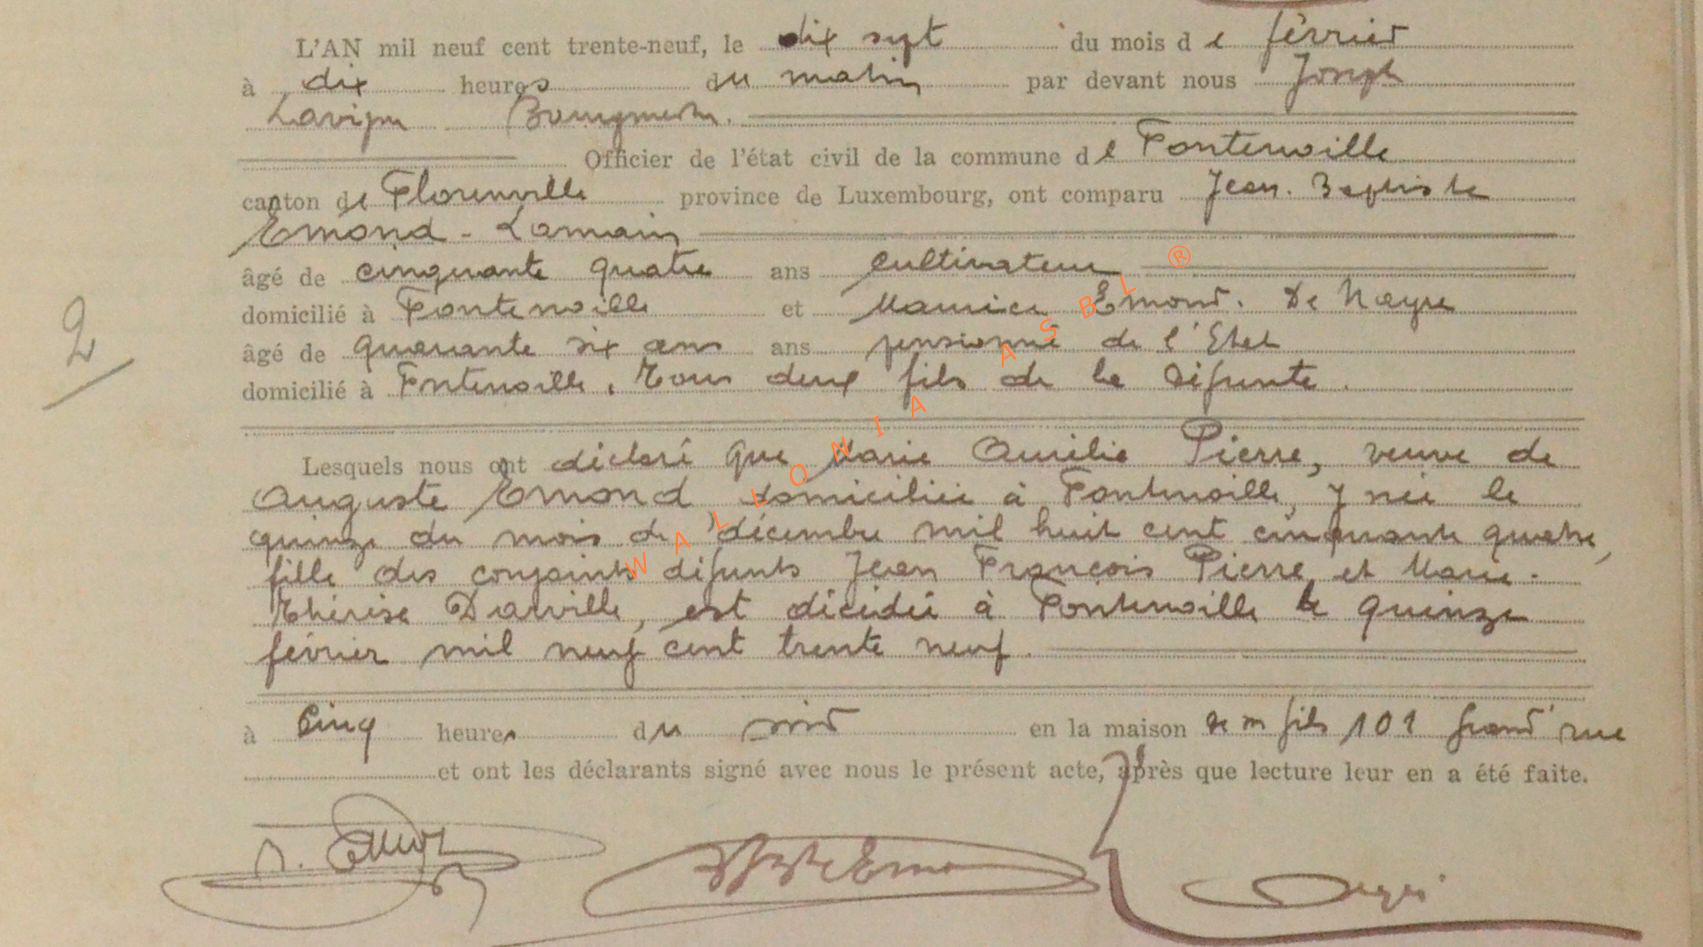 L'AN mil neuf cent trente-neuf, le dix sept du mois de février
à dix heures du matin par devant nous Joseph
Lavigne
Officier de l'état civil de la commune de Fontenoille
canton de Florenville province de Luxembourg, ont comparu Jean-Baptiste
Emond - Lamain
âgé de cinquante quatre ans cultivateur
domicilié à Fontenoille et Maurice Emond. De Naeyer
âgé de quarante six ans ans pensionné de l'Etat
domicilié à Fontenoille. Tous deux fils de la défunte.
Lesquels nous ont déclaré que Marie Aurélie Pierre, veuve de
Auguste Emond domiciliée à Fontenoille, y née le
quinze du mois de décembre mil huit cent cinquante quatre,
fille des conjoints défunts Jean François Pierre et Marie-
Thérèse Darville, est décédée à Fontenoille le quinze
février mil neuf cent trente neuf.
à cinq heures du soir en la maison de son fils 101 grand'rue
et ont les déclarants signé avec nous le présent acte, après que lecture leur en a été faite.
2
WALLONIA ASBL ®